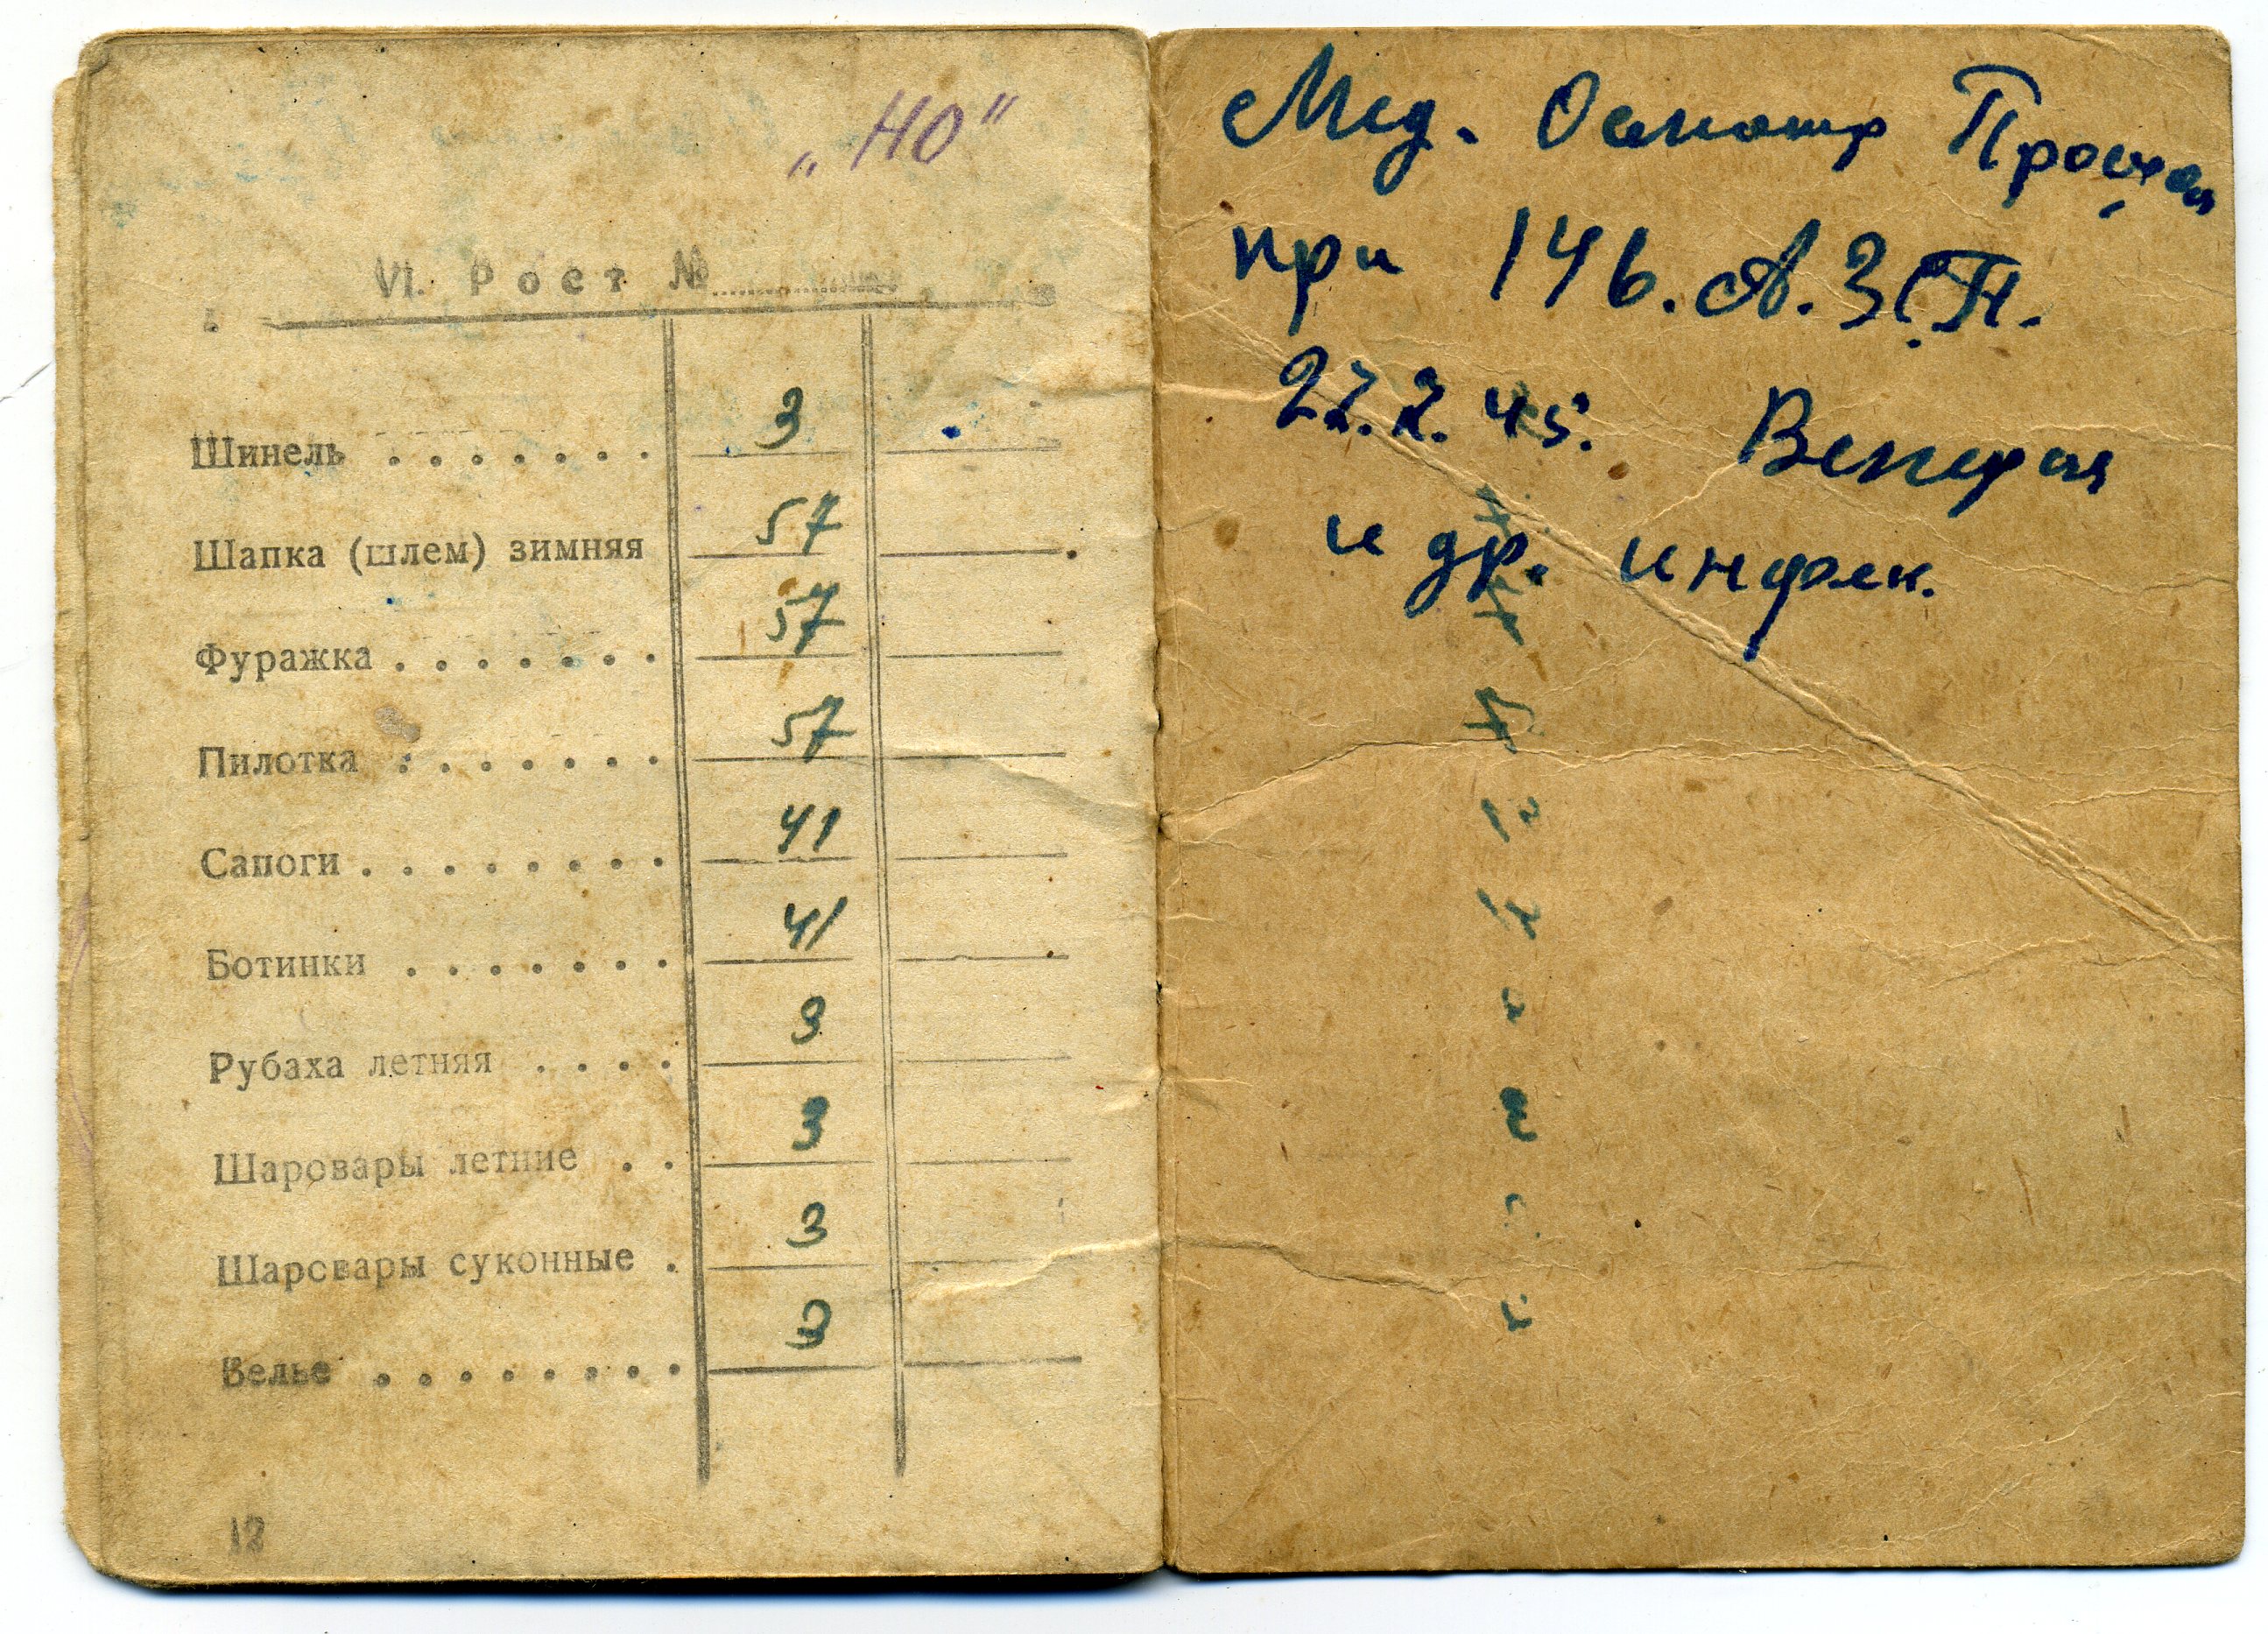 „НО"
VI. Рост №
Шинель . . . . . . . 3
Шапка (шлем) зимняя 57
Фуражка . . . . . . . 57
Пилотка . . . . . . . 57
Сапоги . . . . . . . . 41
Ботинки . . . . . . . 41
Рубаха летняя . . . . 3
Шаровары летние . . 3
Шаровары суконные . 3
Белье . . . . . . . . 3
12
Мед. Осмотр Прошел
при 146. А.ЗСП.
27.2.45. Венерич
и др. инфек.